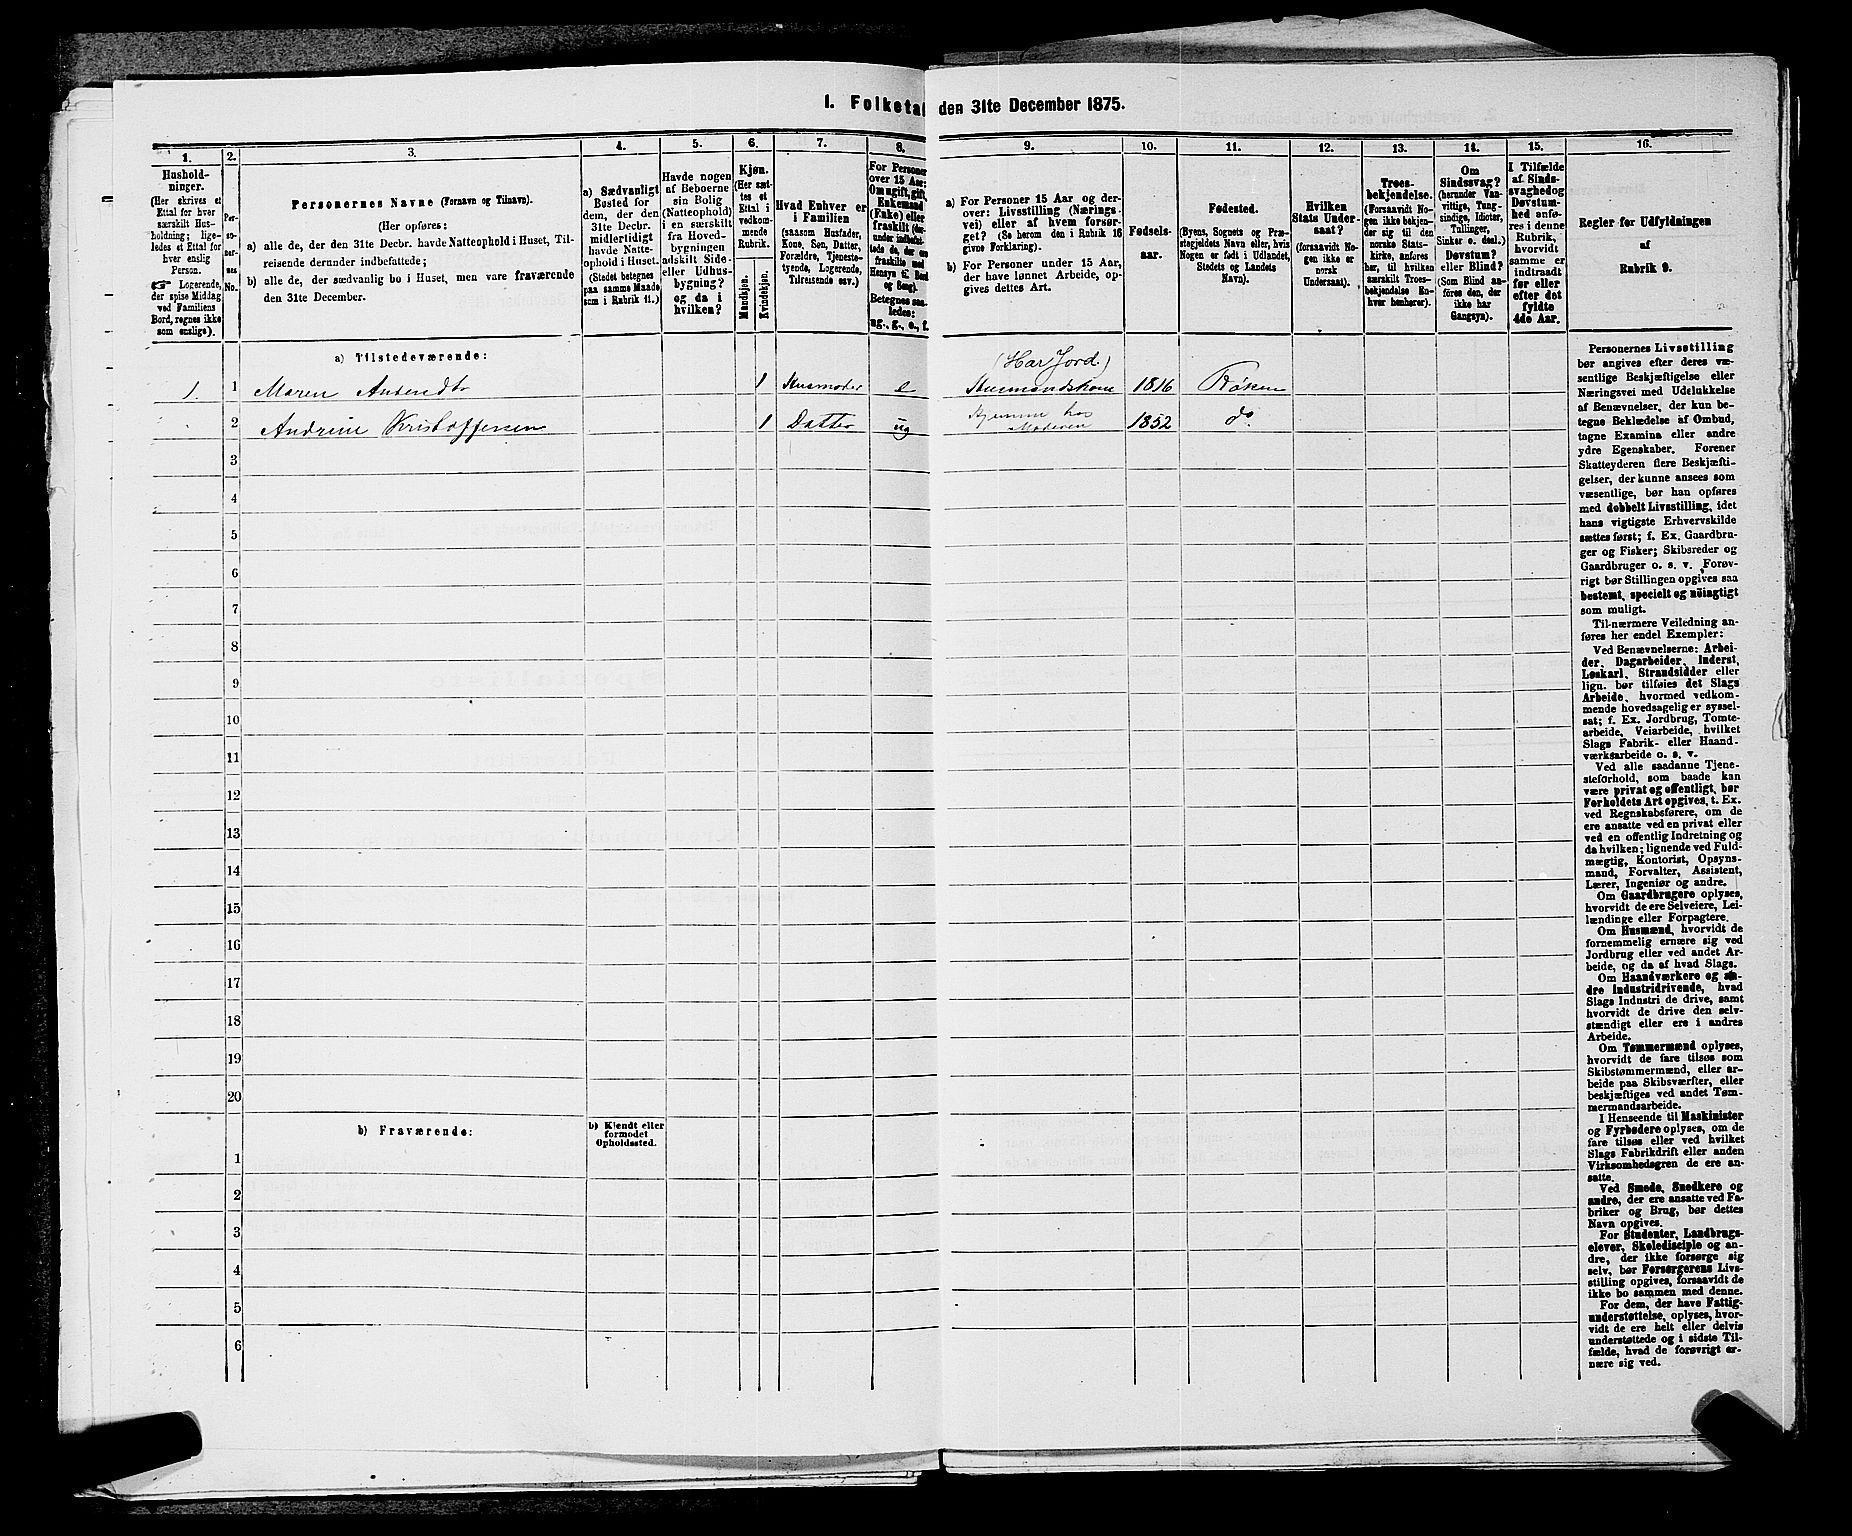 1. Folketal den 31te December 1875.
1.
2.
3.
4.
5.
6.
7.
8.
9.
10.
11.
12.
13.
14.
15.
16.
Hushold-
ninger.
(Her skrives et
Ettal for hver
særskilt Hus-
holdning; lige-
ledes et Ettal for
hver enslig
Person.
☞ Logerende,
der spise Middag
ved Familiens
Bord, regnes ikke
som enslige).
Per-
so-
ner-
nes
No.
Personernes Navne (Fornavn og Tilnavn).
(Her opføres:
a) alle de, der den 31te Decbr. havde Natteophold i Huset, Til-
reisende derunder indbefattede;
b) alle de, der sædvanlig bo i Huset, men vare fraværende
den 31te December.
a) Sædvanligt
Bosted for
dem, der den
31te Decbr.
midlertidigt
havde Natte-
ophold i Huset.
(Stedet betegnes
paa samme Maade
som i Rubrik 11.)
Havde nogen
af Beboerne
sin Bolig
(Natteophold)
i en særskilt
fra Hoved-
bygningen
adskilt Side-
eller Udhus-
bygning?
og da i
hvilken?
Kjøn.
(Her sæt-
tes et
Ettal i
vedkom-
mende
Rubrik.
Mandskjøn.
Kvindekjøn.
Hvad Enhver er
i Familien
(saasom Husfader,
Kone, Søn, Datter,
Forældre, Tjeneste-
tyende, Logerende,
Tilreisende osv.)
For Personer
over 15 Aar:
Om ugift, gift,
Enkemand
(Enke) eller
fraskilt (der-
under indbefat-
tede de, der ere
fraskilte med
Hensyn til Bord
og Seng).
Betegnes saa-
ledes:
ug., g., e., f.
a) For Personer 15 Aar og der-
over: Livsstilling (Nærings-
vei) eller af hvem forsør-
get? (Se herom den i Rubrik 16
givne Forklaring).
b) For Personer under 15 Aar,
der have lønnet Arbeide, op-
gives dettes Art.
Fødsels-
aar.
Fødested.
(Byens, Sognets og Præ-
stegjeldets Navn eller, hvis
Nogen er født i Udlandet,
Stedets og Landets
Navn).
Hvilken
Stats Under-
saat?
(forsaavidt No-
gen ikke er
norsk
Undersaat).
Troes-
bekjendelse.
(Forsaavidt No-
gen ikke bekjen-
der sig til den
norske Stats-
kirke, anføres
her, til hvilken
særskilt Troes-
bekjendelse En-
hver henhører).
Om
Sindssvag?
(herunder Van-
vittige, Tung-
sindige, Idioter,
Tullinger,
Sinker o. desl.)
Døvstum?
eller Blind?
(Som Blind an-
føres den, der
ikke har
Gangsyn).
I Tilfælde
af Sinds-
svaghed og
Døvstum-
hed anfø-
res i denne
Rubrik,
hvorvidt
samme er
indtraadt
før eller
efter det
fyldte
4de Aar.
Regler for Udfyldningen
af
Rubrik 9.
a) Tilstedeværende:
(Har Jord.)
1. 1 Maren 1 Husmoder e Husmandskone 1816 Røken
2 Andrine Kristoffersen 1 Datter ug Hjemme hos 1852 do
Moderen
3
4
5
6
7
8
9
10
11
12
13
14
15
16
17
18
19
20
b) Fraværende:
b) Kjendt eller
formodet
Opholdssted.
1
2
3
4
5
6
Personernes Livsstilling
bør angives efter deres væ-
sentlige Beskjæftigelse eller
Næringsvei med Udelukkelse
af Benævnelser, der kun be-
tegne Beklædelse af Ombud,
tagne Examina eller andre
ydre Egenskaber. Forener
Skatteyderen flere Beskjæfti-
gelser, der kunne ansees som
væsentlige, bør han opføres
med dobbelt Livsstilling, idet
hans vigtigste Erhvervskilde
sættes først; f. Ex. Gaardbru-
ger og Fisker; Skibsreder og
Gaardbruger o. s. v. Forøv-
rigt bør Stillingen opgives saa
bestemt, specielt og nöiagtigt
som muligt.
Til nærmere Veiledning an-
føres her endel Exempler:
Ved Benævnelserne: Arbei-
der, Dagarbeider, Inderst,
Løskarl, Strandsidder eller
lign. bør tilføies det Slags
Arbeide, hvormed vedkom-
mende hovedsagelig er syssel-
sat; f. Ex. Jordbrug, Tomte-
arbeide, Veiarbeide, hvilket
Slags Fabrik- eller Haand-
værksarbeide o. s. v.
Ved alle saadanne Tjene-
steforhold, som baade kan
være privat og offentligt, bør
Forholdets Art opgives, t. Ex.
ved Regnskabsførere, om de
ere ansatte ved en privat eller
ved en offentlig Indretning og
da hvilken; lignende ved Fuld-
mægtig, Kontorist, Opsyns-
mand, Forvalter, Assistent,
Lærer, Ingeniør og andre.
Om Gaardbrugere oplyses,
hvorvidt de ere Selveiere, Lei-
lændinge eller Forpagtere.
Om Husmænd, hvorvidt de
fornemmelig ernære sig ved
Jordbrug eller ved andet Ar-
beide, og da af hvad Slags.
Om Haandværkere og an-
dre Industridrivende, hvad
Slags Industri de drive, samt
hvorvidt de drive den selv-
stændigt eller ere i andres
Arbeide.
Om Tømmermænd oplyses,
hvorvidt de fare tilsøs som
Skibstømmermænd, eller ar-
beide paa Skibsværfter, eller
beskjæftiges ved andet Tøm-
mermandsarbeide.
I Henseende til Maskinister
og Fyrbødere oplyses, om de
fare tilsøs eller ved hvilket
Slags Fabrikdrift eller anden
Virksomhedsgren de ere an-
satte.
Ved Smede, Snedkere og
andre, der ere ansatte ved Fa-
briker og Brug, bør dettes
Navn opgives.
For Studenter, Landbrugs-
elever, Skoledisciple og an-
dre, der ikke forsørge sig
selv, bør Forsørgerens Livs-
stilling opgives, forsaavidt de
ikke bo sammen med denne.
For dem, der have Fattig-
understøttelse, oplyses, hvor-
vidt de ere helt eller delvis
understøttede og i sidste Til-
fælde, hvad de forøvrigt er-
nære sig ved.